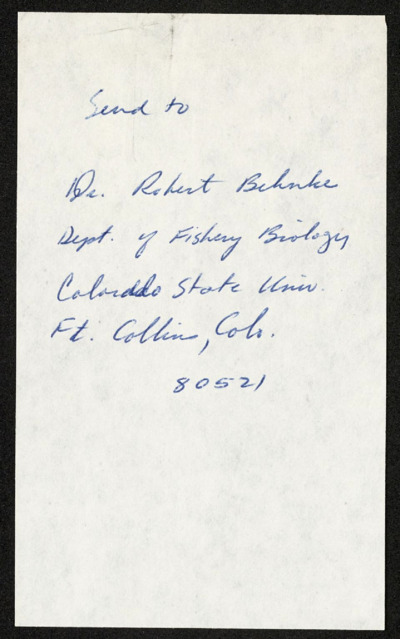 Send to
Dr. Robert Behnke
Dept. of Fishery Biology
Colorado State Univ.
Ft. Collins, Colo.
80521